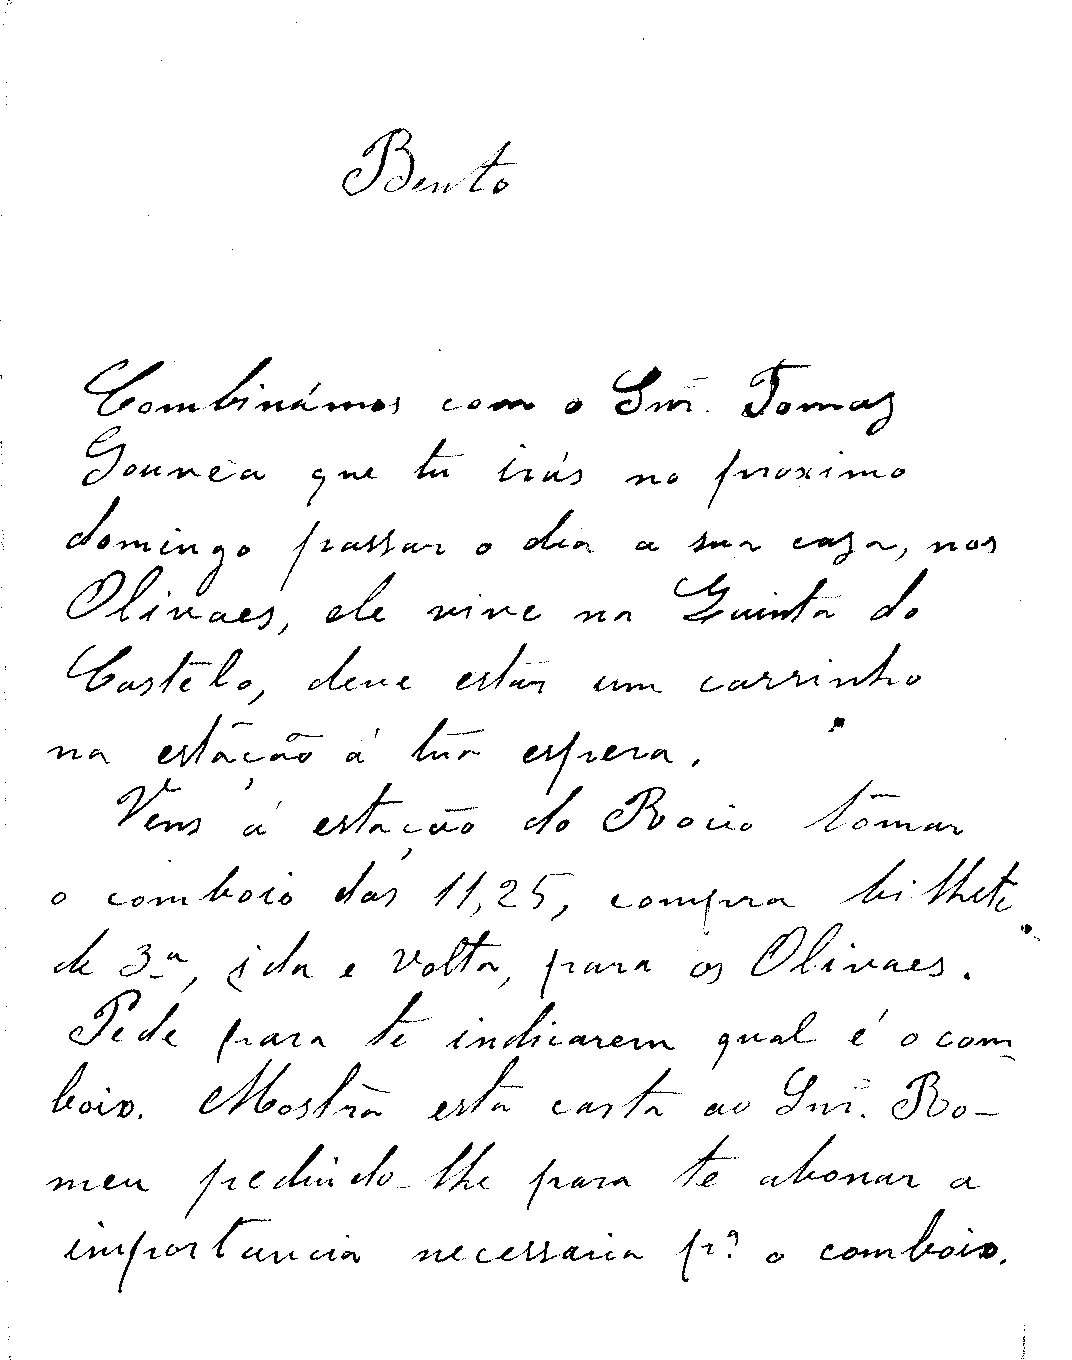 Bento
Combinámos com o Snr. Tomaz
Gouvêa que tu irás no proximo
domingo passar o dia a sua caza, nos
Olivaes, ele vive na Quinta do
Castelo, deve estar um carrinho
na estação á tua espera.
Vens á estação do Rocio tomar
o comboio das 11,25, compra bilhete
de 3ª, ida e volta, para os Olivaes.
Pede para te indicarem qual é o com-
boio. Mostra esta carta ao Snr. Ro-
meu pedindo-lhe para te abonar a
importancia necessaria pª o comboio.